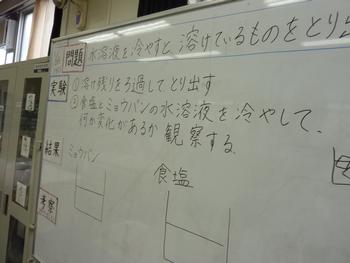 問題 水溶液を冷やすと、溶けているものをとり出
実験 ①溶け残りをろ過してとり出す
②食塩とミョウバンの水溶液を冷やして、
何か変化があるか観察する。
結果 ミョウバン
食塩
考察